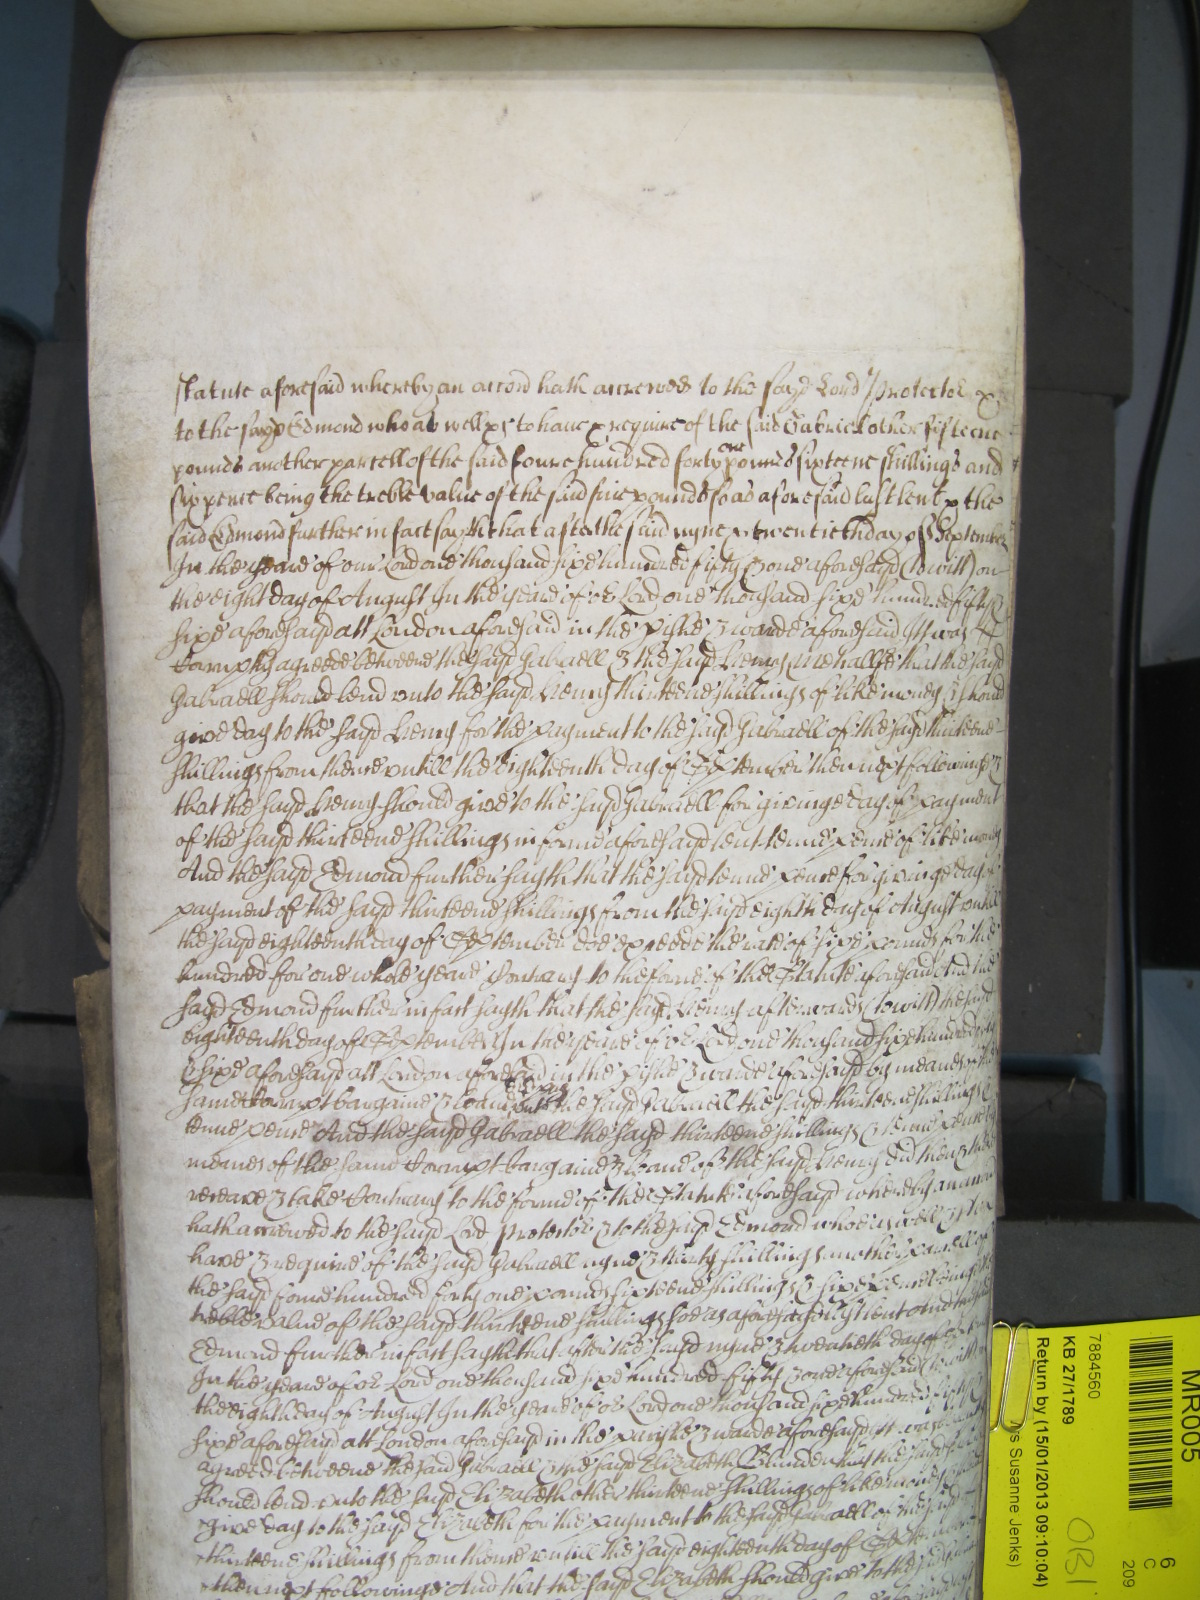 statute aforesaid whereby an accon hath accrewed to the sayd Lord Protector &
to the sayd Edmond who as well &c to have & require of the said Gabriel other fifteene
pounds another parcell of the said foure hundred forty one pounds sixteene shillings and
six pence being the treble value of the said five pounds so as aforesaid last lent & the
said Edmond further in fact sayth that after the said nyne & twentieth day of September
In the yeare of our Lord one thousand sixe hundred fifty & one aforesaid (to witt) on
the eight day of August In the yeare of or Lord one thousand sixe hundred fifty &
sixe aforesayd att London aforesaid in the pishe & warde aforesaid It was
corruptly agreede betweene the sayd Gabraell & the sayd Henry that the sayd
Gabraell should lend unto the sayd Henry thirteene shillings of like money & should
give day to the sayd Henry for the payment to the sayd Gabraell of the sayd thirteene
shillings from thence untill the eighteenth day of September then next followinge &
that the sayd Henry should give to the sayd Gabraell for givinge day of payment
of the sayd thirteene shillings in forme aforesayd lent tenne pence of like money
And the sayd Edmond further sayth that the sayd tenne pence for givinge day of
payment of the sayd thirteene shillings from the sayd eighth day of August untill
the sayd eighteenth day of September doe exceede the rate of sixe pounds for the
hundred for one whole yeare Contrary to the forme of the Statute aforesaid And the
sayd Edmond further in fact sayth that the sayd Henry afterwards (to witt) the sayd
eighteenth day of September In the yeare of or Lord one thousand sixe hundred fifty
& sixe aforesayd att London aforesaid in the pishe & warde aforesayd by meanes of the
same Corrupt bargaine & loane the sayd Gabraell the sayd thirteene shillings &
tenne pence And the sayd Gabraell the sayd thirteene shillings & tenne pence by
meanes of the same Corrupt bargaine & loane of the sayd Henry did then & there
receave & take Contrary to the forme of the Statute aforesayd whereby an accon
hath accrewed to the sayd Lord Protector & to the sayd Edmond who as well &c to
have & require of the sayd Gabraell nyne & thirty shillings another parcell of
the sayd foure hundred forty one pounds sixteene shillings & sixe pence being the
treble value of the sayd thirteene shillings soe as aforesayd last lent And the sayd
Edmond further in fact sayth that after the sayd nyne & twentieth day of September
In the yeare of or Lord one thousand sixe hundred fifty & one aforesaid (to witt) on
the eighth day of August In the yeare of or Lord one thousand sixe hundred fifty &
sixe aforesayd att London aforesayd in the parishe & warde aforesayd It was
agreed betweene the said Gabraell & the sayd Elizabeth Blunden that the sayd
should lend unto the sayd Elizabeth other thirteene shillings of like money
give day to the sayd Elizabeth for the payment to the sayd Gabraell of the sayd
thirteene shillings from thence untill the sayd eighteenth day of September
then next followinge And that the sayd Elizabeth should give to the sayd
MR005
6
C
209
7884560
KB 27/1789
Return by (15/01/2013 09:10:04)
s Susanne Jenks)
OB1